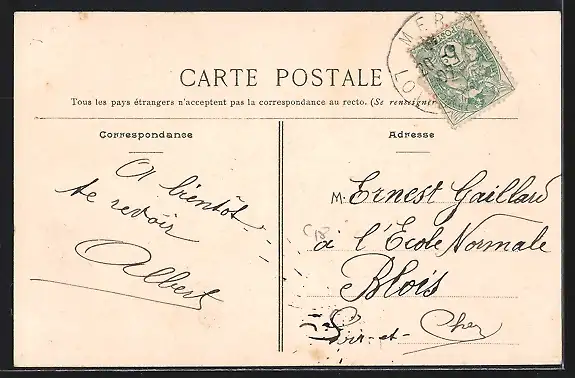 CARTE POSTALE
Tous les pays étrangers n'acceptent pas la correspondance au recto. (Se renseigner
Correspondance
A bientôt
te revoir
Albert
Adresse
M. Ernest Gaillard
à l'École Normale
Blois
Loir-et-Cher
MER
LO
5